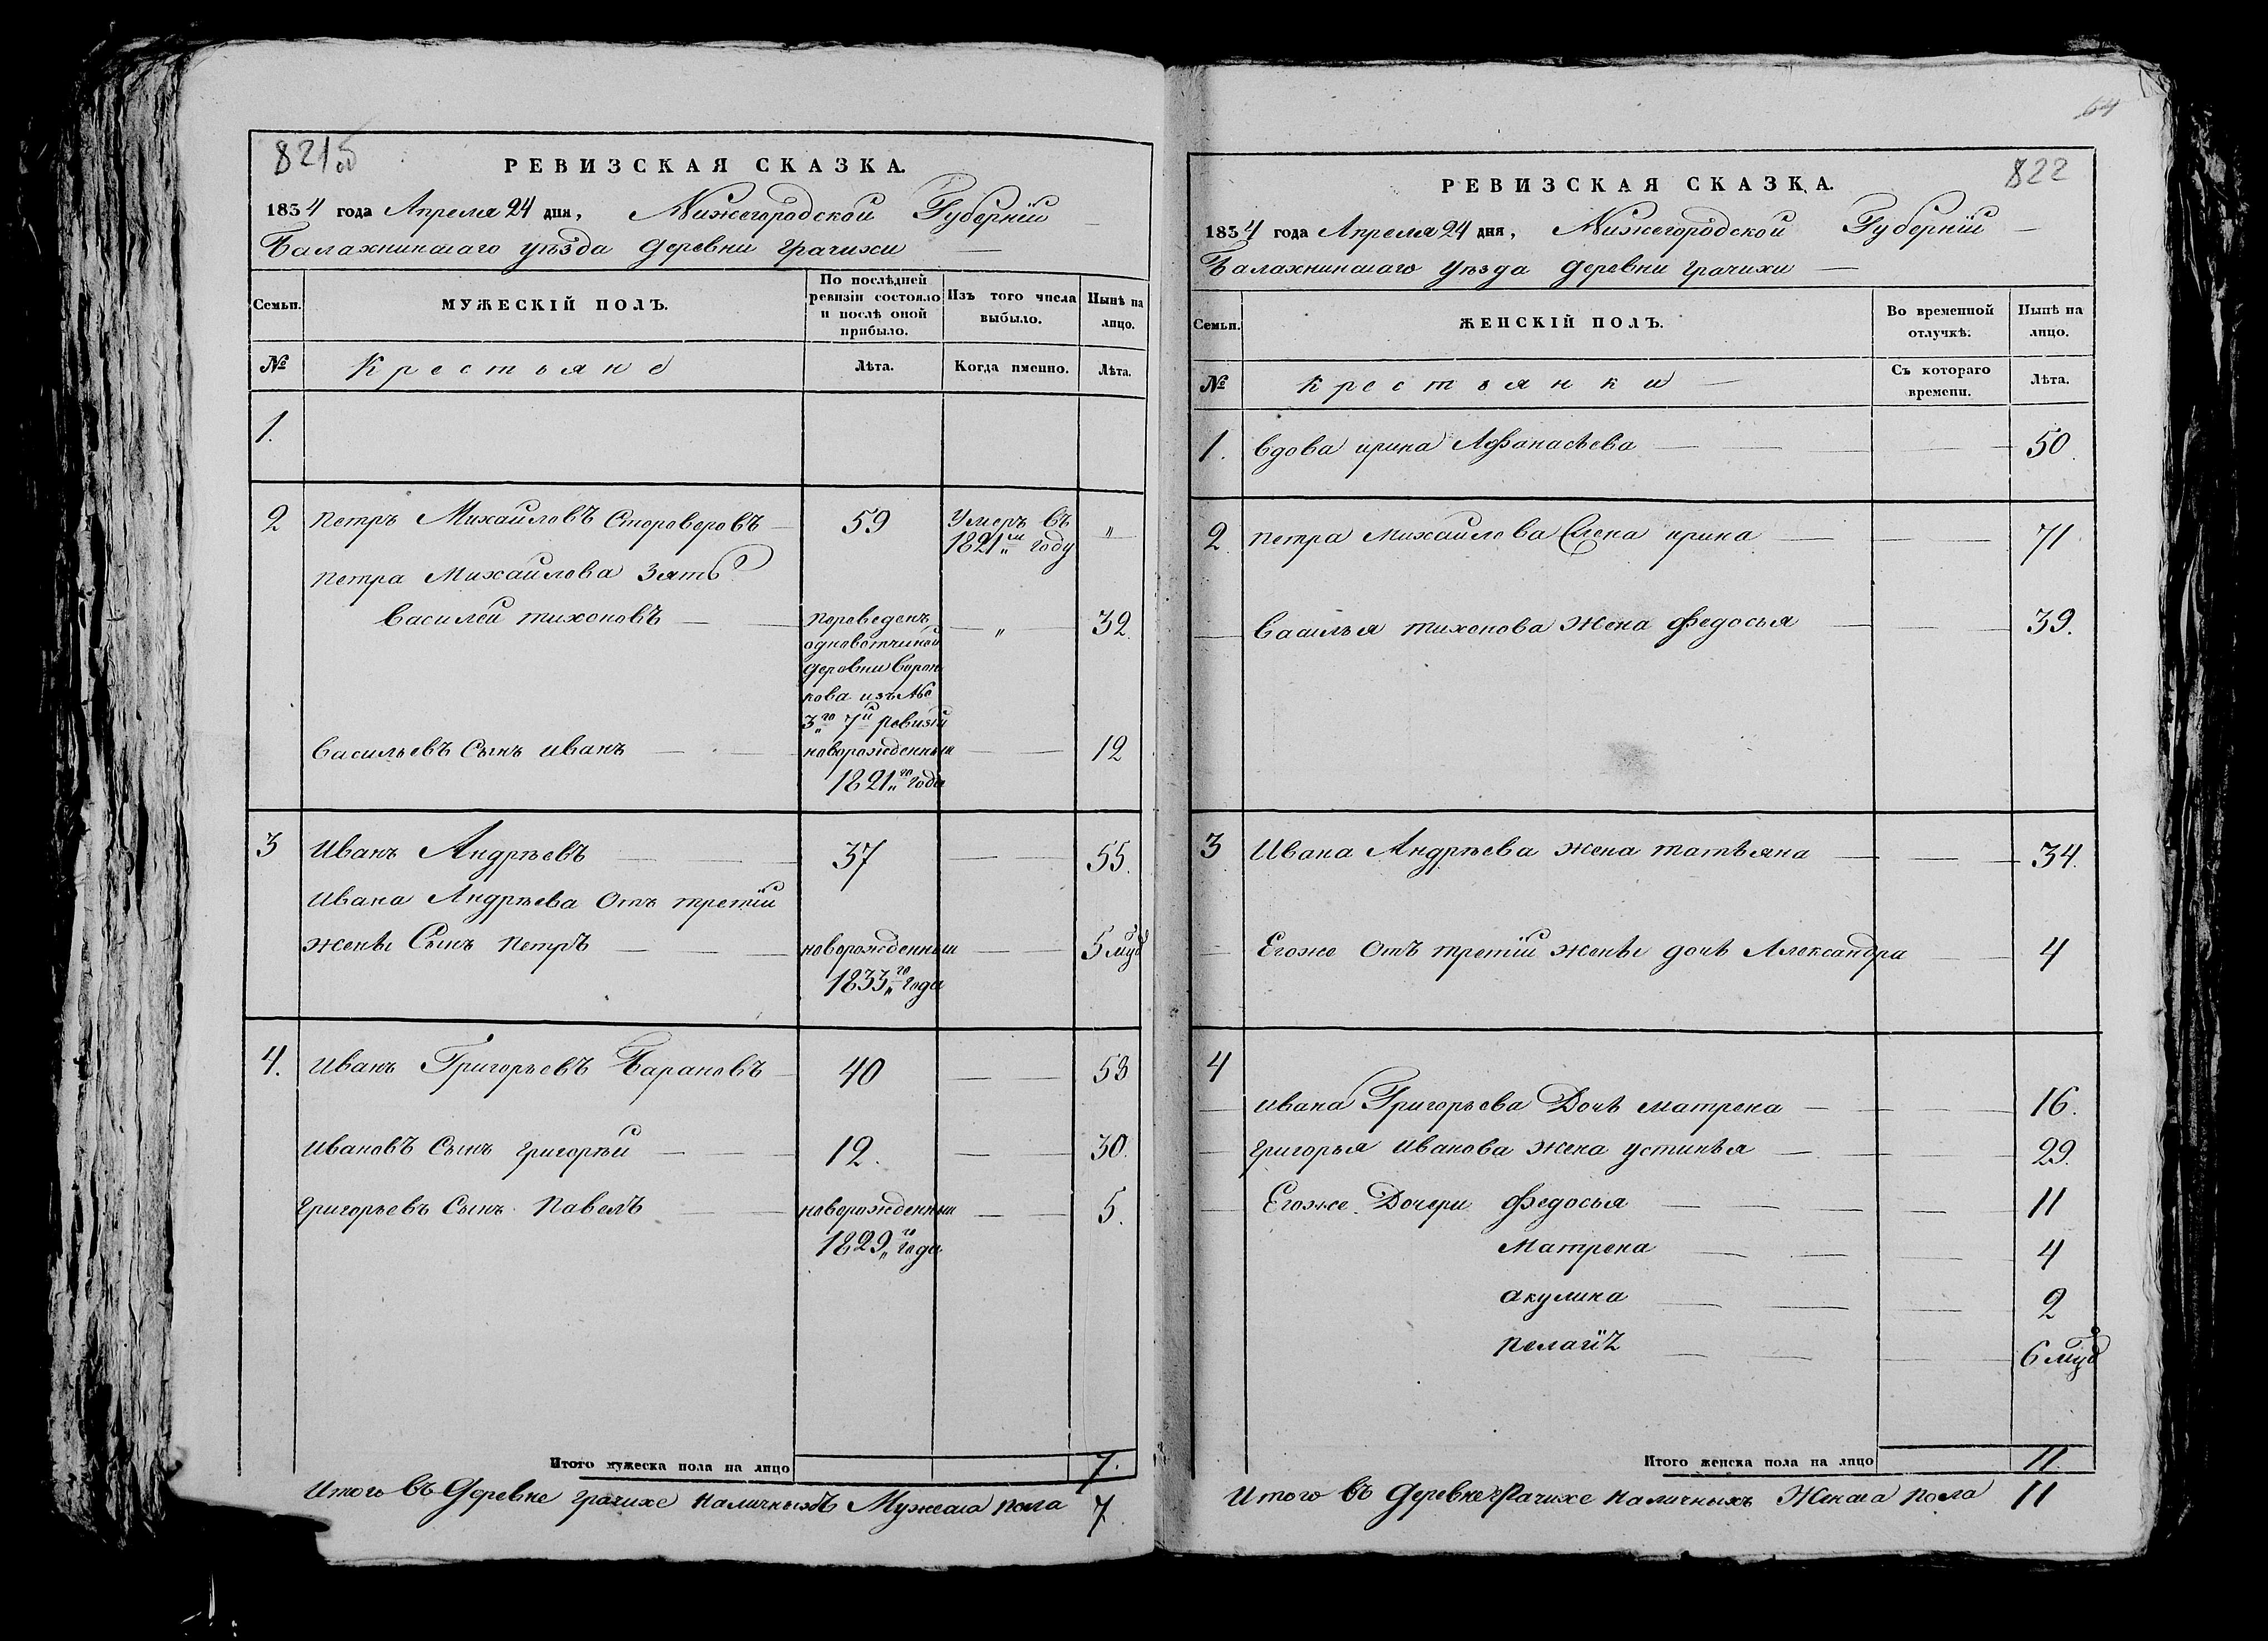 821об
РЕВИЗСКАЯ СКАЗКА.
1834 года Апреля 24 дня, Нижегородской Губерніи
Балахнинскаго уѣзда деревни Грачихи
Семьи. МУЖЕСКІЙ ПОЛЪ. По послѣдней ревизіи состояло и послѣ оной прибыло. Изъ того числа выбыло. Нынѣ на лицо.
№ Крестьяне Лѣта. Когда именно. Лѣта.
1.
2 Петръ Михайловъ Староверовъ 59 Умеръ въ 1821м году "
Петра Михайлова Зять
Василей тихоновъ Переведенъ " 32.
одновотчиной
деревни Ворон
кова изъ №
3го 7й ревизіи
Васильевъ Сынъ иванъ новорожденный 12
1821го года
3 Иванъ Андрѣевъ 37 55.
Ивана Андрѣева Отъ третіи
женъı Сынъ Петръ новорожденный 5 мцъ
1833го года
4. Иванъ Григорьевъ Барановъ 40 58
Ивановъ Сынъ григорѣй 12. 30.
Григорьевъ Сынъ Павелъ новорожденный 5.
1829го года
Итого мужеска пола на лицо 7.
Итого въ деревне грачихе наличныхъ Мужеска пола 7
64
822
РЕВИЗСКАЯ СКАЗКА.
1834 года Апреля 24 дня, Нижегородской Губерніи
Балахнинскаго уѣзда деревни грачихи
Семьи. ЖЕНСКІЙ ПОЛЪ. Во временной отлучкѣ. Нынѣ на лицо.
№ Крестьянки Съ котораго времени. Лѣта.
1. вдова ирина Афанасьева 50.
2. Петра Михайлова Жена ирина 71.
Василья тихонова Жена федосья 39.
3 Ивана Андрѣева жена татьяна 34.
Егоже Отъ третіи женъı дочь Александра 4
4
Ивана Григорьева Дочь матрена 16.
Григорья Иванова жена устинья 29.
Егоже Дочери федосья 11
Матрена 4
акулина 2
Пелагія 6 мцъ
Итого женска пола на лицо 11.
Итого въ деревне грачихе наличныхъ Женска пола 11